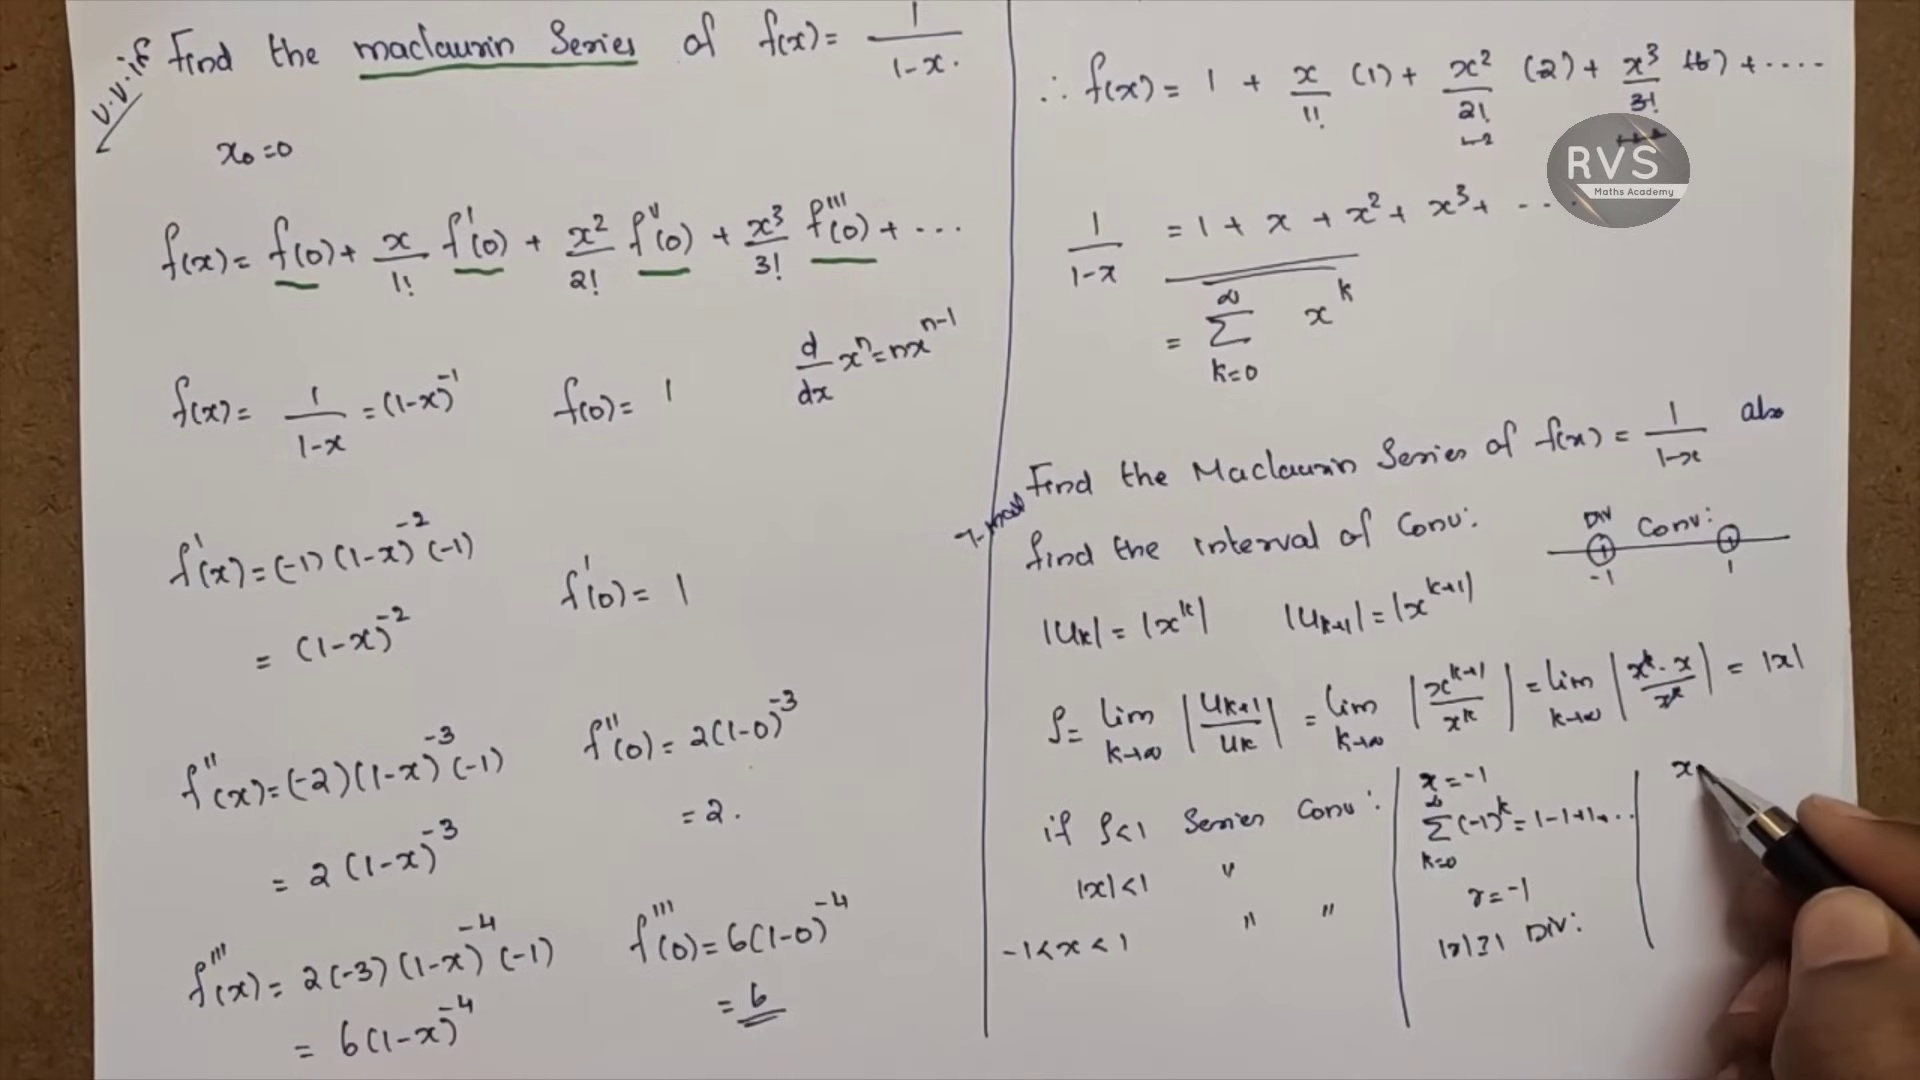 V.V.if Find the maclaurin Series of f(x) = 1/(1-x).
x₀=0
f(x) = f(0) + x/1! f'(0) + x²/2! f''(0) + x³/3! f'''(0) + ...
d/dx xⁿ = nxⁿ⁻¹
f(x) = 1/(1-x) = (1-x)⁻¹ f(0) = 1
f'(x) = (-1)(1-x)⁻²(-1) f'(0) = 1
= (1-x)⁻²
f''(x) = (-2)(1-x)⁻³(-1) f''(0) = 2(1-0)⁻³
= 2(1-x)⁻³ = 2.
f'''(x) = 2(-3)(1-x)⁻⁴(-1) f'''(0) = 6(1-0)⁻⁴
= 6(1-x)⁻⁴ = 6
∴ f(x) = 1 + x/1! (1) + x²/2! (2) + x³/3! (6) + ....
RVS
Maths Academy
1/(1-x) = 1 + x + x² + x³ + ...
= ∑ₖ₌₀^∞ xᵏ
Find the Maclaurin Series of f(x) = 1/(1-x) also
find the interval of Conv:
Div Conv:
-1 1
|Uₖ| = |xᵏ| |Uₖ₊₁| = |xᵏ⁺¹|
ρ = lim k→∞ |Uₖ₊₁/Uₖ| = lim k→∞ |xᵏ⁺¹/xᵏ| = lim k→∞ |xᵏ·x/xᵏ| = |x|
if ρ<1 Series Conv:
|x|<1 "
-1<x<1 " "
x = -1
∑ₖ₌₀^∞ (-1)ᵏ = 1-1+1...
r = -1
|r|≥1 Div:
x